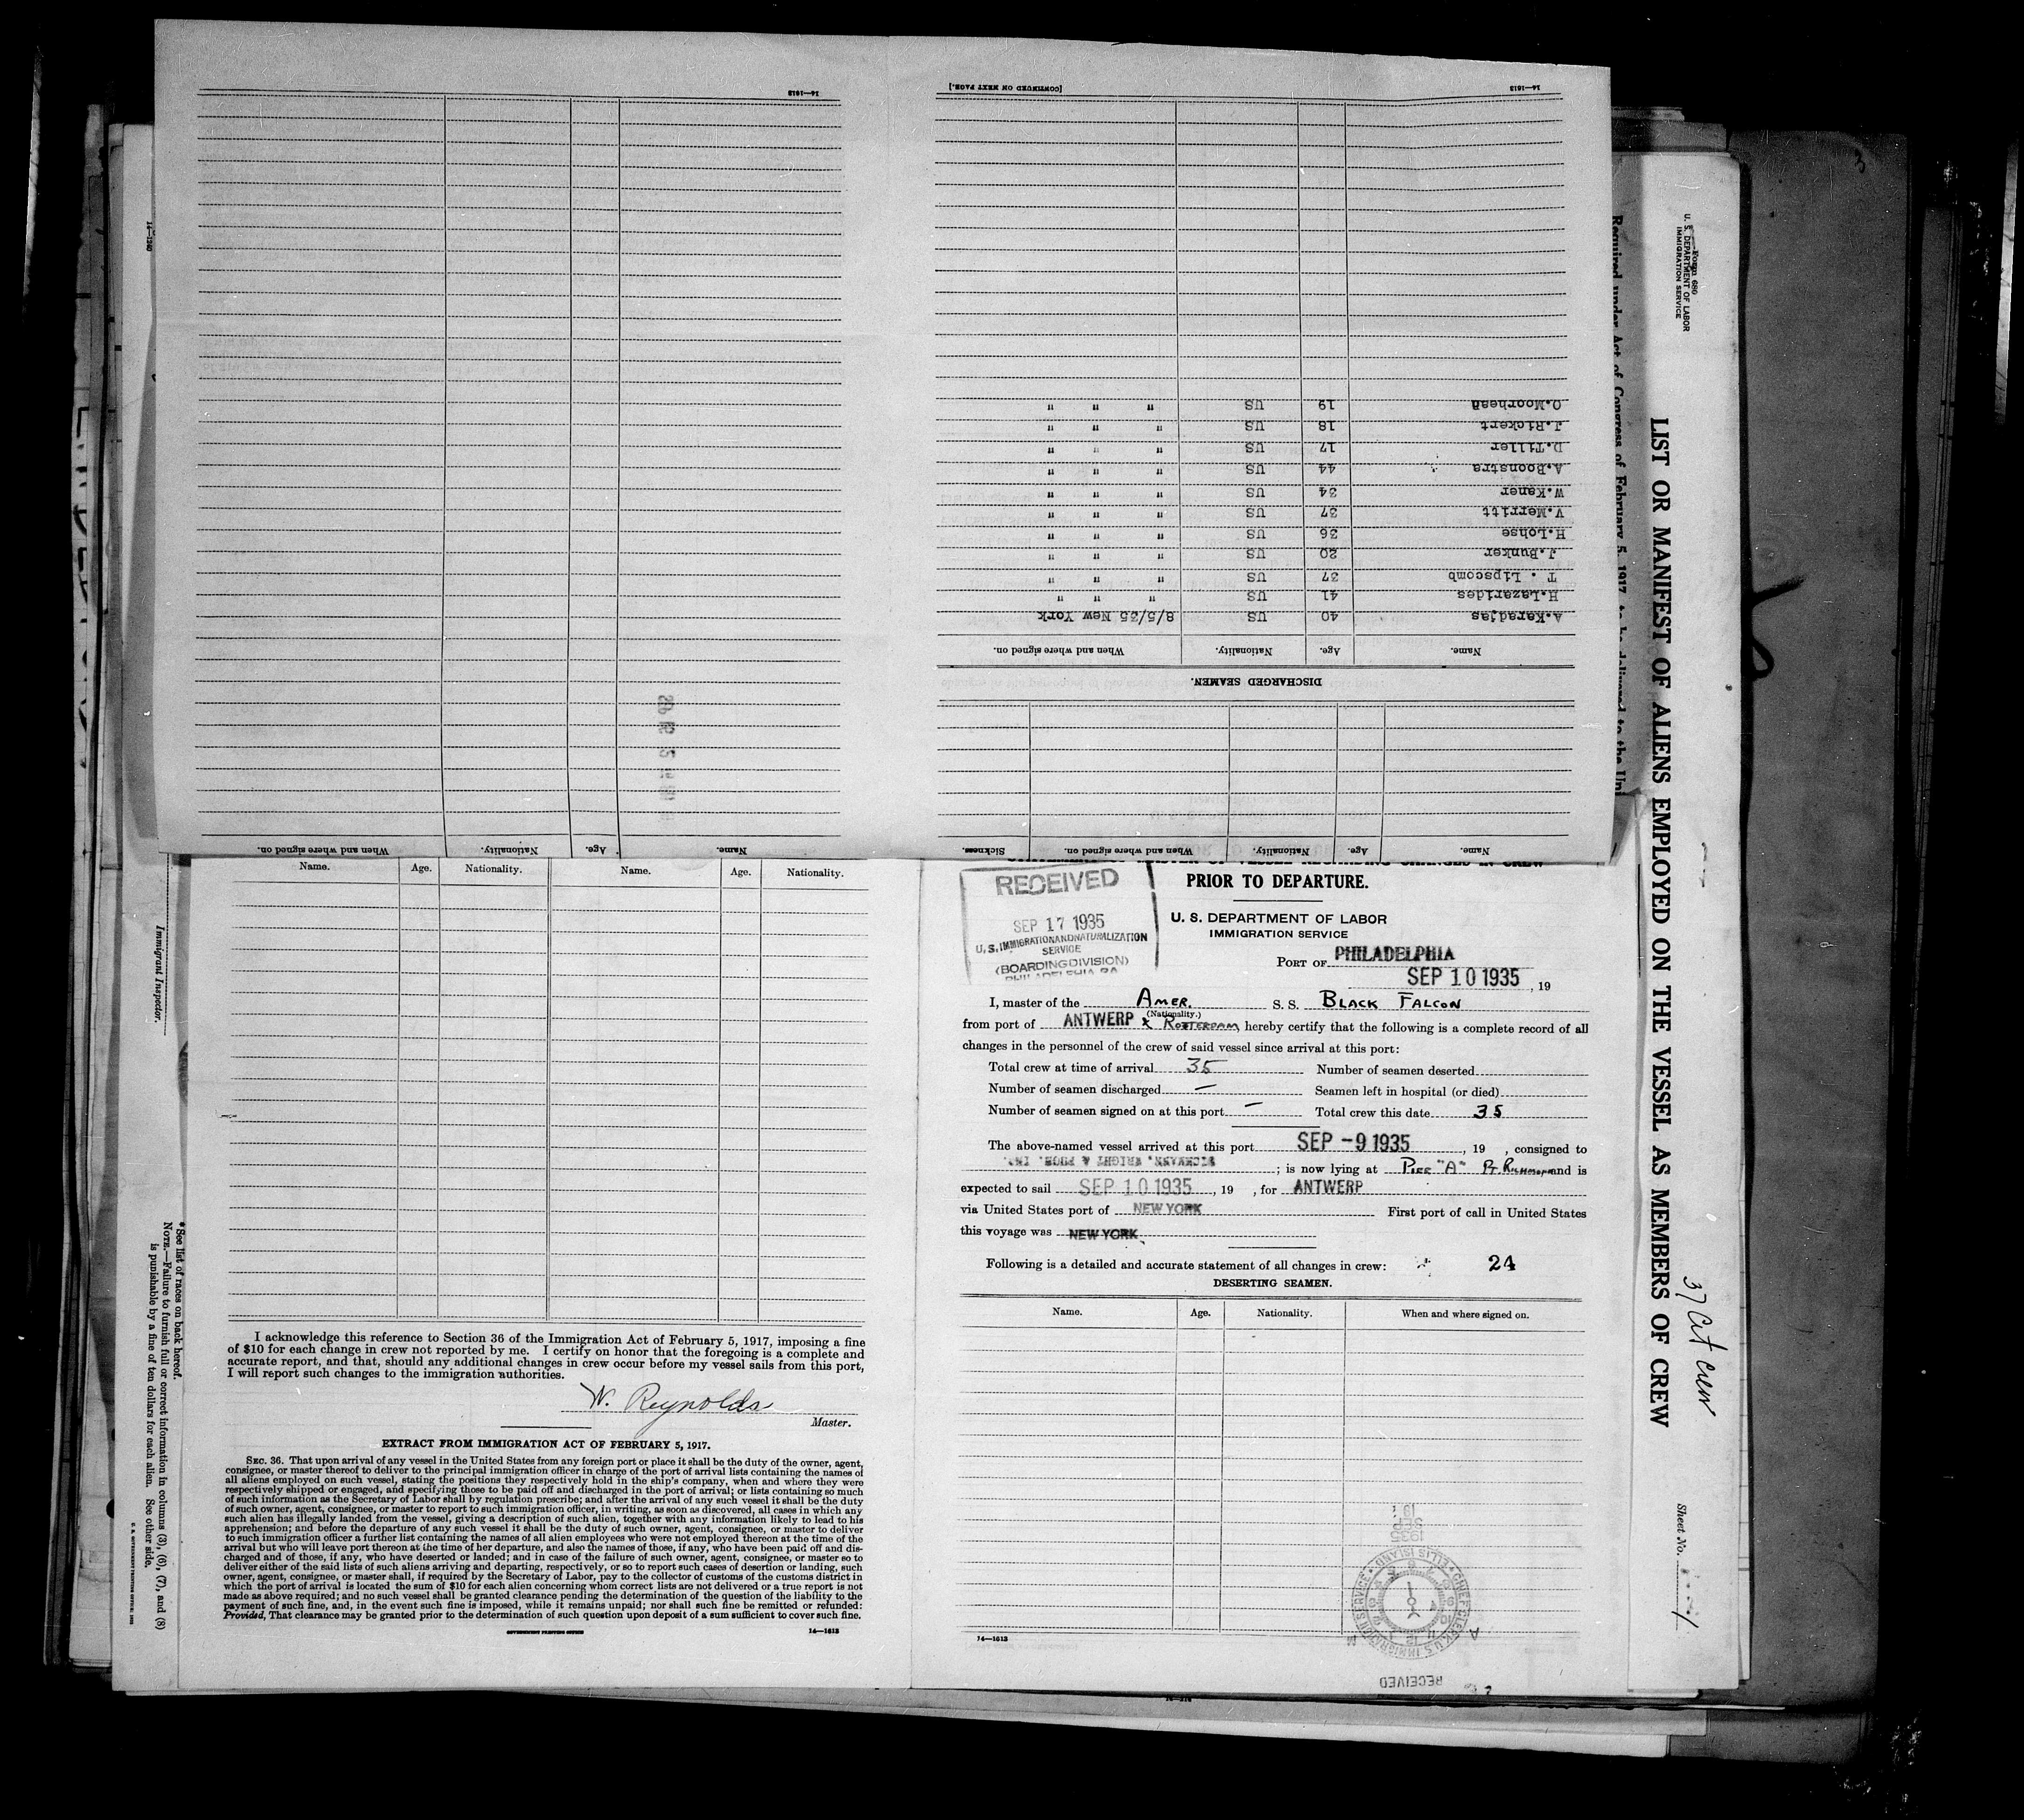 14—1613
When and where signed on.
Nationality.
Age.
Name.
[CONTINUED ON NEXT PAGE.]
14—1613
Name.
Age.
Nationality.
When and where signed on.
Sickness.
DISCHARGED SEAMEN.
Name.
Age.
Nationality.
When and where signed on.
A.Karadjas 40 US 8/5/35 New York
H.Lazarides 41 US " " "
T. Lipscomb 37 US " " "
J.Bunker 20 US " " "
H.Lohse 36 US " " "
V.Merritt 37 US " " "
W.Kaner 34 US " " "
A.Boonstra 44 US " " "
D.Tiller 17 US " " "
J.Rickert 18 US " " "
O.Moorhead 19 US " " "
Name. Age. Nationality. Name. Age. Nationality.
I acknowledge this reference to Section 36 of the Immigration Act of February 5, 1917, imposing a fine
of $10 for each change in crew not reported by me. I certify on honor that the foregoing is a complete and
accurate report, and that, should any additional changes in crew occur before my vessel sails from this port,
I will report such changes to the immigration authorities.
W. Reynolds
Master.
EXTRACT FROM IMMIGRATION ACT OF FEBRUARY 5, 1917.
SEC. 36. That upon arrival of any vessel in the United States from any foreign port or place it shall be the duty of the owner, agent,
consignee, or master thereof to deliver to the principal immigration officer in charge of the port of arrival lists containing the names of
all aliens employed on such vessel, stating the positions they respectively hold in the ship's company, when and where they were
respectively shipped or engaged, and specifying those to be paid off and discharged in the port of arrival; or lists containing so much
of such information as the Secretary of Labor shall by regulation prescribe; and after the arrival of any such vessel it shall be the duty
of such owner, agent, consignee, or master to report to such immigration officer, in writing, as soon as discovered, all cases in which any
such alien has illegally landed from the vessel, giving a description of such alien, together with any information likely to lead to his
apprehension; and before the departure of any such vessel it shall be the duty of such owner, agent, consignee, or master to deliver
to such immigration officer a further list containing the names of all alien employees who were not employed thereon at the time of the
arrival but who will leave port thereon at the time of her departure, and also the names of those, if any, who have been paid off and dis-
charged and of those, if any, who have deserted or landed; and in case of the failure of such owner, agent, consignee, or master so to
deliver either of the said lists of such aliens arriving and departing, respectively, or so to report such cases of desertion or landing, such
owner, agent, consignee, or master shall, if required by the Secretary of Labor, pay to the collector of customs of the customs district in
which the port of arrival is located the sum of $10 for each alien concerning whom correct lists are not delivered or a true report is not
made as above required; and no such vessel shall be granted clearance pending the determination of the question of the liability to the
payment of such fine, and, in the event such fine is imposed, while it remains unpaid; nor shall such fine be remitted or refunded:
Provided, That clearance may be granted prior to the determination of such question upon deposit of a sum sufficient to cover such fine.
GOVERNMENT PRINTING OFFICE
14—1613
PRIOR TO DEPARTURE.
RECEIVED
SEP 17 1935
U.S. IMMIGRATION AND NATURALIZATION
SERVICE
(BOARDING DIVISION)
U. S. DEPARTMENT OF LABOR
IMMIGRATION SERVICE
PORT OF PHILADELPHIA
SEP 10 1935, 19
I, master of the AMER. S. S. BLACK FALCON
(Nationality.)
from port of ANTWERP & ROTTERDAM, hereby certify that the following is a complete record of all
changes in the personnel of the crew of said vessel since arrival at this port:
Total crew at time of arrival 35 Number of seamen deserted
Number of seamen discharged — Seamen left in hospital (or died)
Number of seamen signed on at this port — Total crew this date 35
The above-named vessel arrived at this port SEP -9 1935, 19 , consigned to
; is now lying at PIER "A" Pt. Richmond and is
expected to sail SEP 10 1935, 19 , for ANTWERP
via United States port of NEW YORK First port of call in United States
this voyage was NEW YORK
Following is a detailed and accurate statement of all changes in crew: 24
DESERTING SEAMEN.
Name. Age. Nationality. When and where signed on.
14—1613
CHIEF CLERK, U.S. IMMIGRATION SERVICE
ELLIS ISLAND
1935
SEP
13
RECEIVED
Form 680
U. S. DEPARTMENT OF LABOR
IMMIGRATION SERVICE
LIST OR MANIFEST OF ALIENS EMPLOYED ON THE VESSEL AS MEMBERS OF CREW
37 Cit crew
Sheet No. 1
Required under Act of Congress of February 5, 1917, to be delivered to the
14—1240
Immigrant Inspector.
*See list of races on back hereof.
NOTE.—Failure to furnish full or correct information in columns (3), (6), (7), and (8)
is punishable by a fine of ten dollars for each alien. See other side.
3